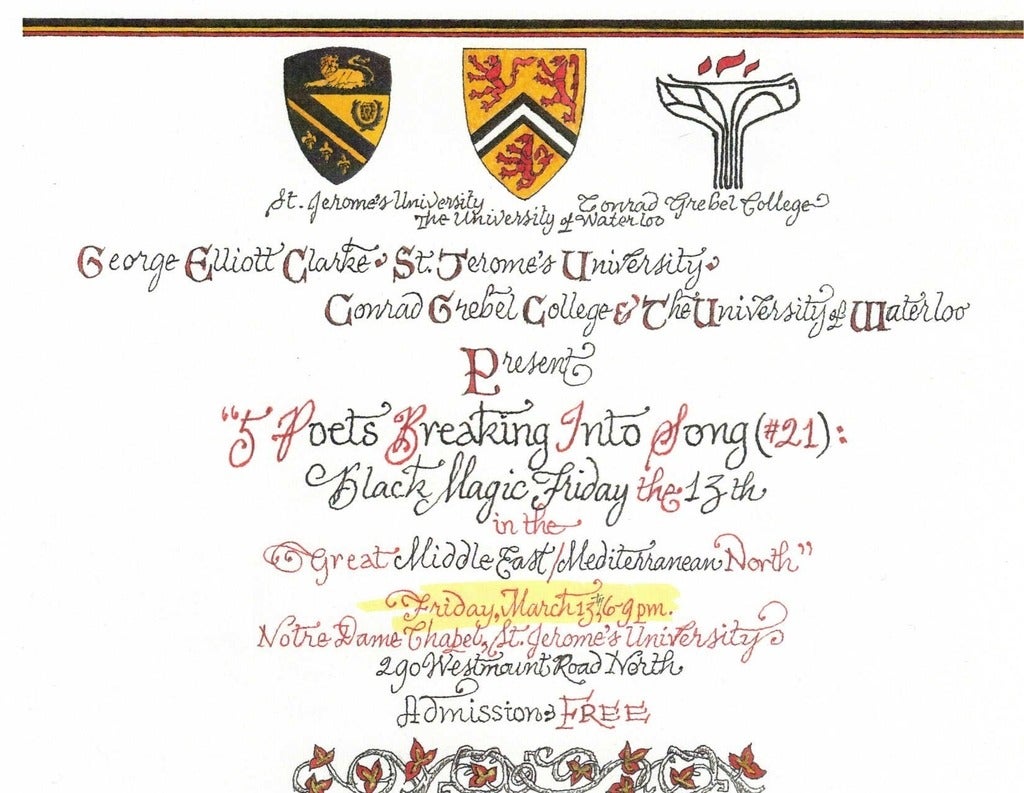 St. Jerome's University
The University of Waterloo
Conrad Grebel College
George Elliott Clarke • St. Jerome's University •
Conrad Grebel College & The University of Waterloo
Present
"5 Poets Breaking Into Song (#21):
Black Magic Friday the 13th
in the
Great Middle East/Mediterranean North"
Friday, March 13th, 6-9 pm.
Notre Dame Chapel, St. Jerome's University
290 Westmount Road North
Admission: FREE